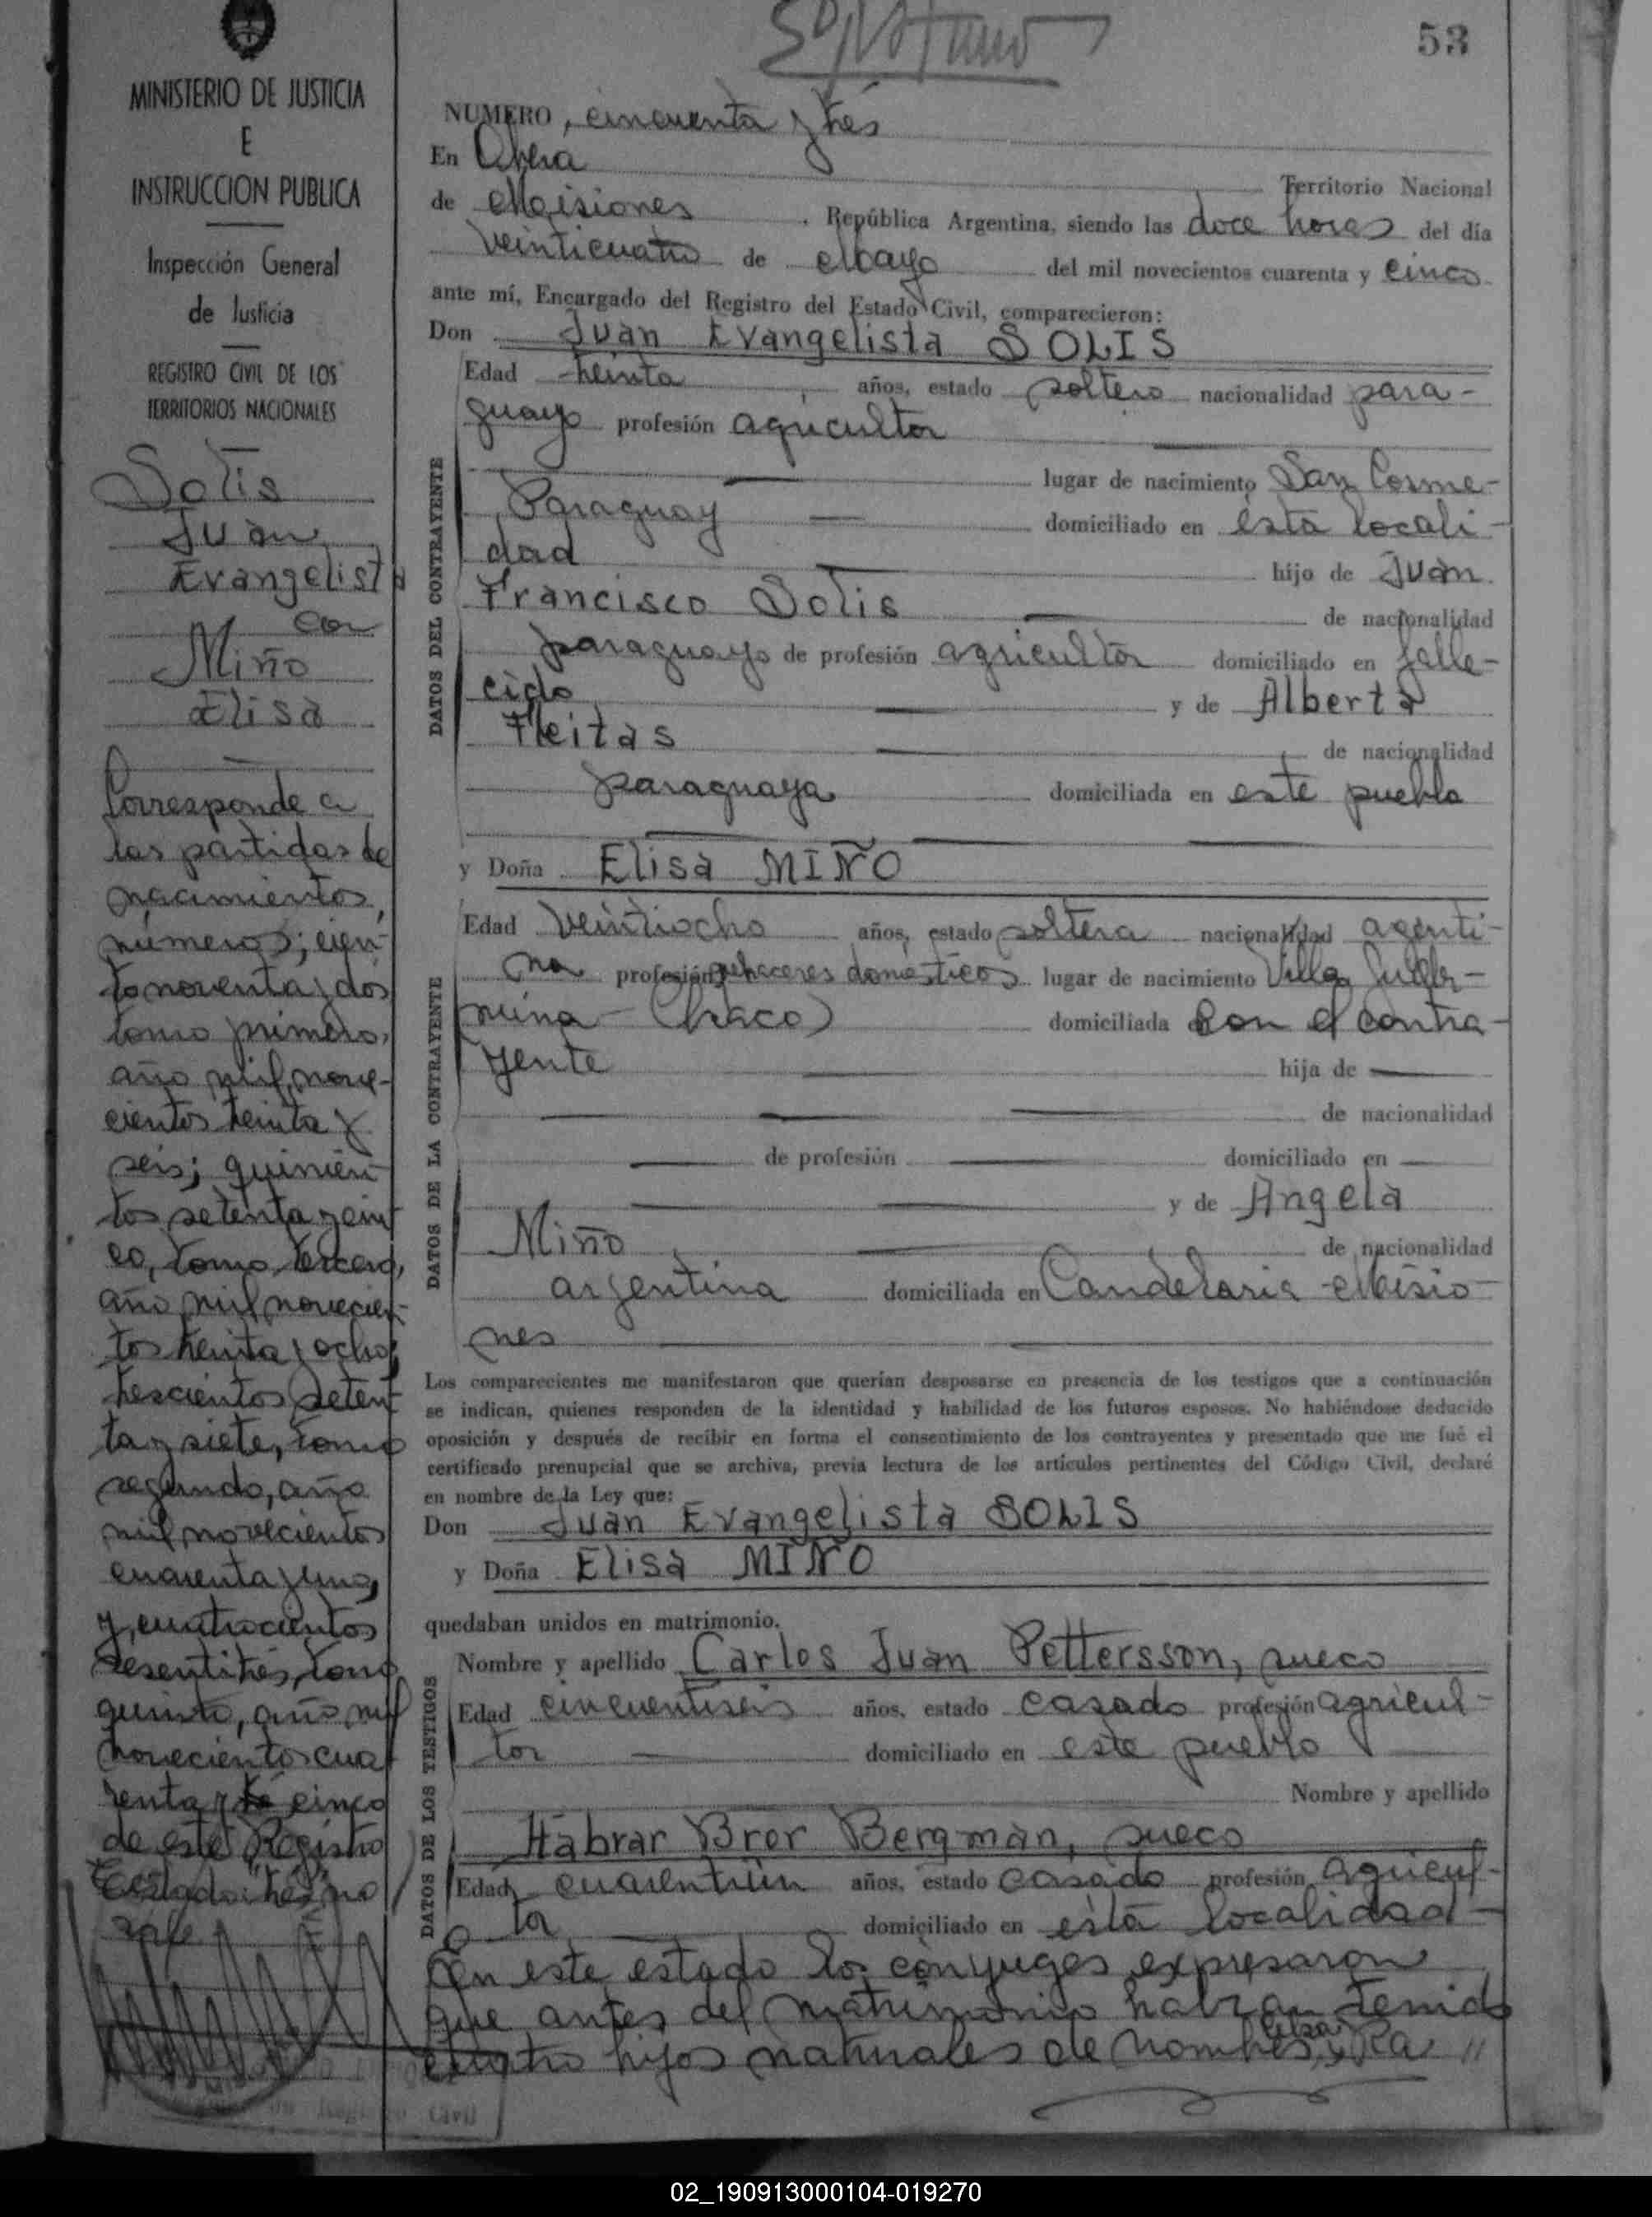 53
MINISTERIO DE JUSTICIA
E
INSTRUCCION PUBLICA
Inspección General
de Justicia
REGISTRO CIVIL DE LOS
TERRITORIOS NACIONALES
Solis
Juan
Evangelista
con
Miño
Elisa
Corresponde a
las partidas de
nacimientos,
números; cien-
to noventa y dos
tomo primero,
año mil nove-
cientos treinta y
seis; quinien-
tos setenta y cin-
co, tomo tercero,
año mil novecien-
tos treinta y ocho;
trescientos seten-
ta y siete, tomo
segundo, año
mil novecientos
cuarenta y uno,
y cuatrocientos
sesentitrés, tomo
quinto, año mil
novecientos cua-
renta y cinco
de este Registro
Testado: "tres", no
vale
NUMERO, cincuenta y trés
En Obera
Territorio Nacional
de Misiones República Argentina, siendo las doce horas del día
veinticuatro de Mayo del mil novecientos cuarenta y cinco
ante mí, Encargado del Registro del Estado Civil, comparecieron:
Don Juan Evangelista SOLIS
DATOS DEL CONTRAYENTE
Edad treinta años, estado soltero nacionalidad para-
guayo profesión agricultor
lugar de nacimiento San Cosme-
Paraguay domiciliado en ésta locali-
dad hijo de Juan
Francisco Solis de nacionalidad
paraguayo de profesión agricultor domiciliado en falle-
cido y de Alberta
Fleitas de nacionalidad
paraguaya domiciliada en este pueblo
y Doña Elisa MIÑO
DATOS DE LA CONTRAYENTE
Edad veintiocho años, estado soltera nacionalidad agenti-
na profesión quehaceres domésticos lugar de nacimiento Villa Guiller-
mina (Chaco) domiciliada con el contra-
yente hija de
de nacionalidad
de profesión domiciliado en
y de Angela
Miño de nacionalidad
argentina domiciliada en Candelaria - Misio-
nes
Los comparecientes me manifestaron que querían desposarse en presencia de los testigos que a continuación
se indican, quienes responden de la identidad y habilidad de los futuros esposos. No habiéndose deducido
oposición y después de recibir en forma el consentimiento de los contrayentes y presentado que me fué el
certificado prenupcial que se archiva, previa lectura de los artículos pertinentes del Código Civil, declaré
en nombre de la Ley que:
Don Juan Evangelista SOLIS
y Doña Elisa MIÑO
quedaban unidos en matrimonio.
DATOS DE LOS TESTIGOS
Nombre y apellido Carlos Juan Pettersson, sueco
Edad cincuentiseis años, estado casado profesión agricul-
tor domiciliado en este pueblo
Nombre y apellido
Habrar Bror Bergman, sueco
Edad cuarentiún años, estado casado profesión agricul-
tor domiciliado en ésta localidad-
En este estado los cónyuges expresaron
que antes del matrimonio habían tenido
cuatro hijos naturales de nombres, Ra //
02_190913000104-019270